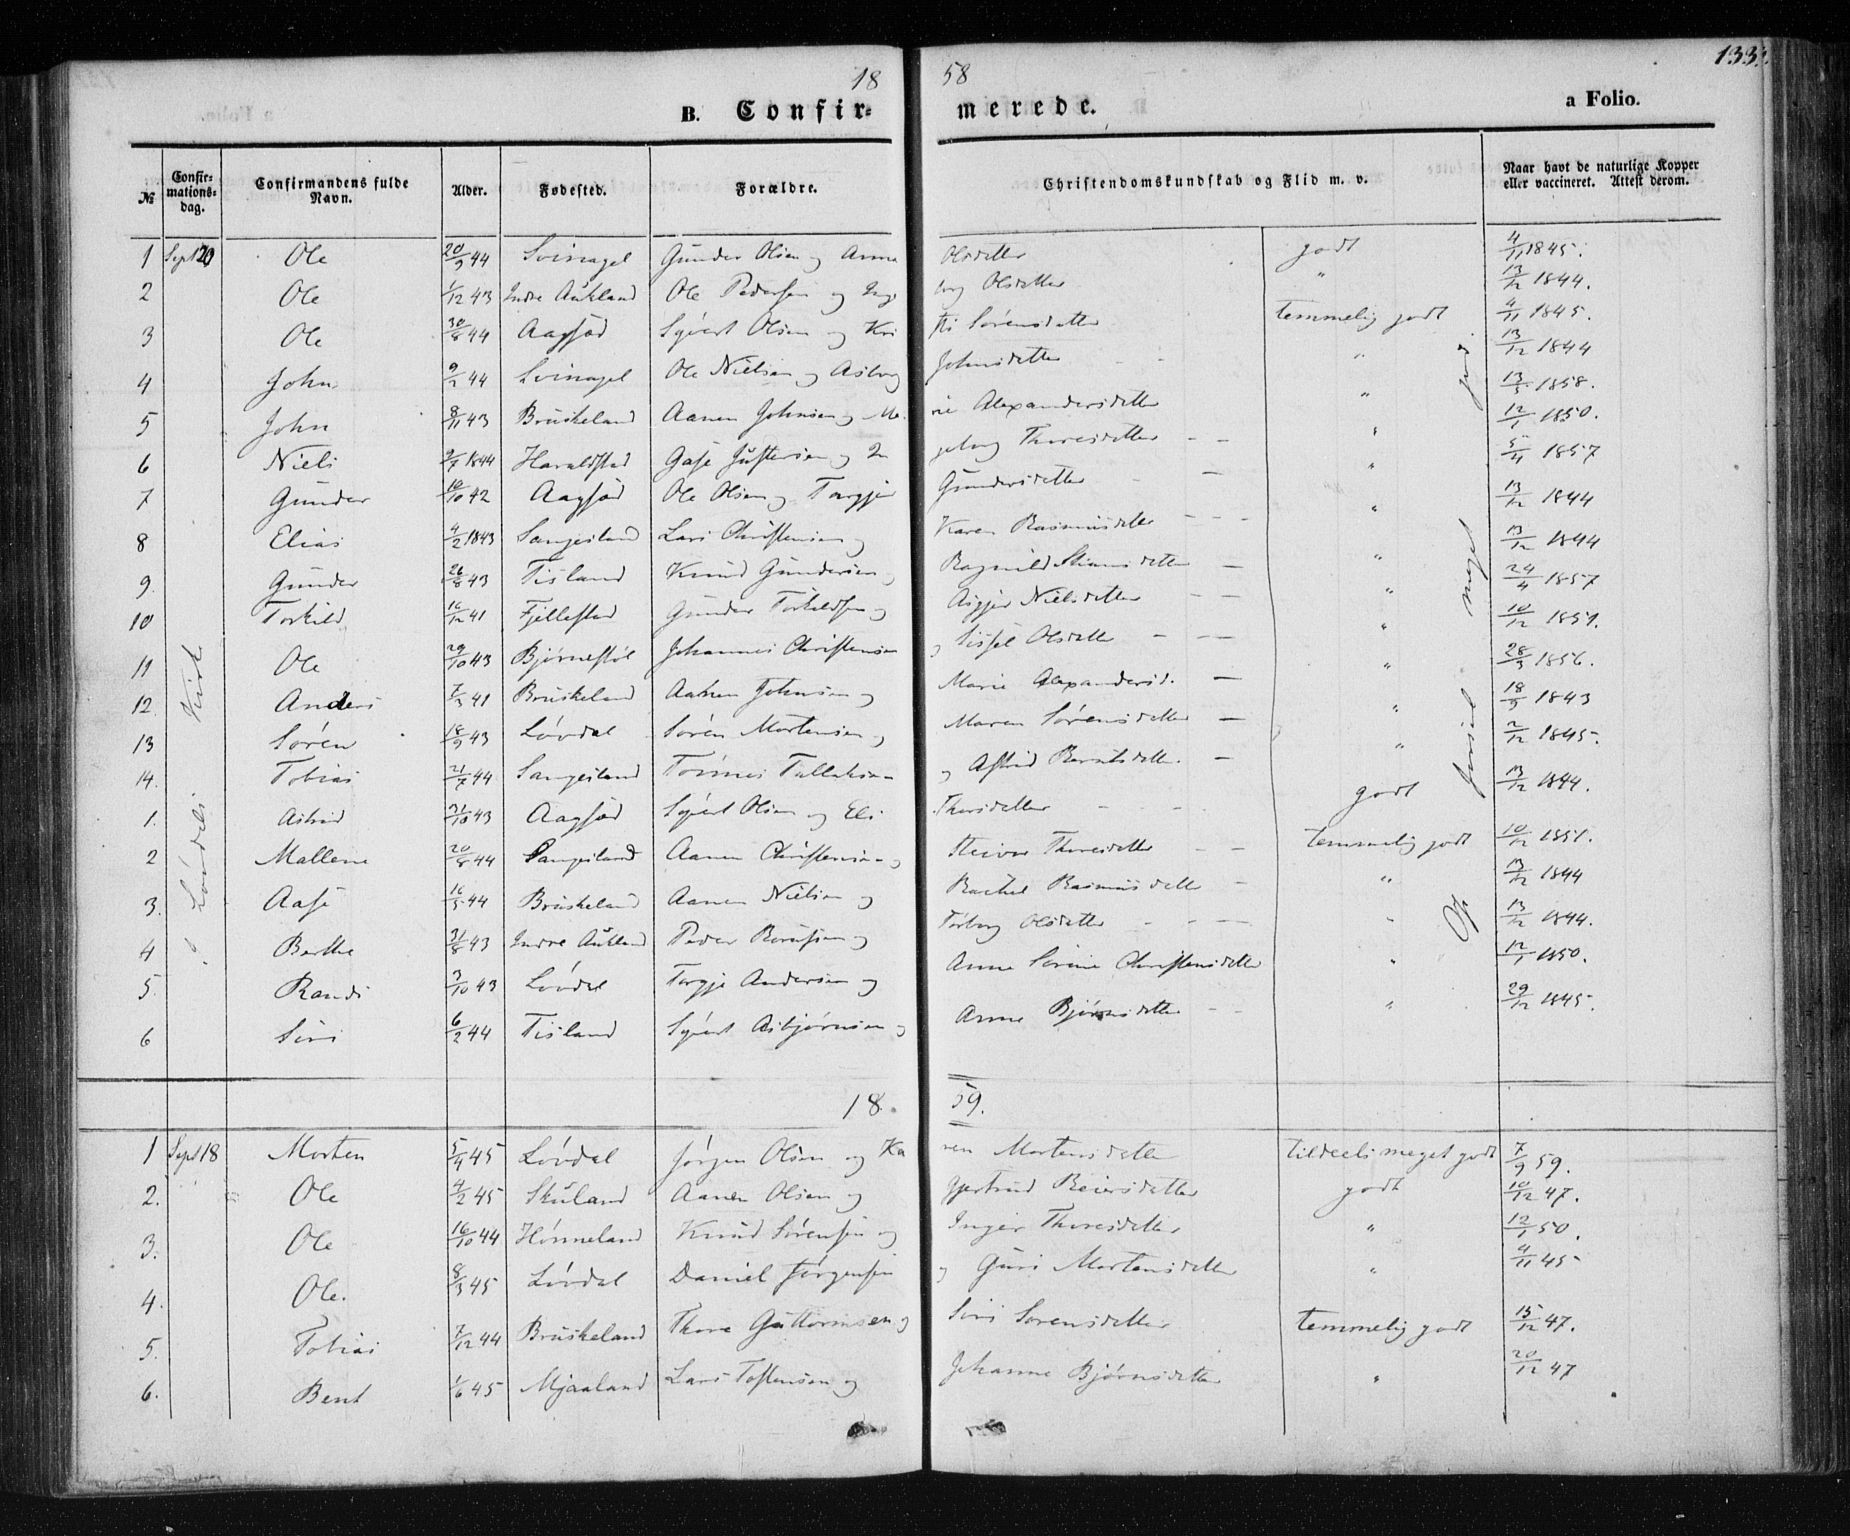 18 58
133.
B. Confirmerede.
a Folio.
№ Confirmations-dag. Confirmandens fulde Navn. Alder. Fødested. Forældre. Christendomskundskab og Flid m. v. Naar havt de naturlige Kopper eller vaccineret. Attest derom.
1 Sept 20 Ole 20/9 44 Svinagel Gunder Olsen og Anne Olsdatter godt 4/11 1845.
2 Ole 1/12 43 Indre Aukland Ole Pedersen og Ingeborg Olsdatter " 13/12 1844.
3 Ole 30/8 44 Aagsød Syvert Olsen og Kristi Sørensdatter temmelig godt 4/11 1845.
4 John 9/2 44 Svinagel Ole Nielsen og Asborg Johnsdatter " 13/12 1844
5 John 8/11 43 Bruskeland Aanen Johnsen og Marie Alexandersdatter " 13/5 1858.
6 Niels 9/7 1844 Haraldstad Gase Justersen og Ingeborg Thoresdatter " 12/1 1850.
7 Gunder 10/10 42 Aagsød Ole Olsen og Torgjer Gundersdatter " 5/4 1857
8 Elias 4/2 1843 Sangesland Lars Christensen og Karen Rasmusdatter " 13/12 1844
9. Gunder 26/8 43 Tisland Knud Gundersen og Ragnild Stiansdatter " 13/12 1844
10 Torkild 16/12 41 Fjellestad Gunder Torkildsen og Asgjer Nielsdatter " 24/4 1857
11 Ole 29/10 43 Bjørnestøl Johannes Christensen og Sissel Olsdatter " 10/12 1851.
12. Anders 7/3 41 Bruskeland Aanen Johnsen og Marie Alexandersd. " 28/3 1856.
13 Søren 18/9 43 Løvdal Søren Mortensen og Maren Sørensdatter " 18/9 1843
14. Tobias 21/7 44 Sangesland Tønnes Tallaksen og Astrid Berntsdatter. " 2/12 1845.
1. Astrid 31/10 43 Aagsød Syvert Olsen og Eli Thorsdatter godt 13/12 1844.
2 Mallene 20/8 44 Sangesland Aanen Christensen og Steivor Thoresdatter temmelig godt 10/12 1851.
3. Aase 16/5 44 Bruskeland Aanen Nielsen og Rachel Rasmusdatter " 13/12 1844
4 Berthe 31/8 43 Indre Aukland Peder Berntsen og Torborg Olsdatter " 13/12 1844.
5. Randi 3/10 43 Løvdal Torgje Andersen og Anne Serine Christensdatter " 12/1 1850.
6 Siri 6/2 44 Tisland Syvert Asbjørnsen og Anne Bjørnsdatter " 29/12 1845.
Løvdals Kirk
Opførsel meget god
18 59.
1 Sept 18 Morten 5/4 45 Løvdal Jørgen Olsen og Karen Mortensdatter tildeels meget godt 7/9 59.
2. Ole 4/2 45 Skuland Aanen Olsen og Gjertrud Reiersdatter godt 10/12 47.
3. Ole 16/10 44 Hønneland Knud Sørensen og Inger Thoresdatter " 12/1 50.
4. Ole. 8/3 45 Løvdal Daniel Jørgensen og Guri Mortensdatter " 4/11 45
5. Tobias 7/12 44 Bruskeland Thore Guttormsen og Siri Sørensdatter temmelig godt 15/12 47.
6. Bent 1/6 45 Mjaaland Lars Tostensen og Johanne Bjørnsdatter " 20/12 47